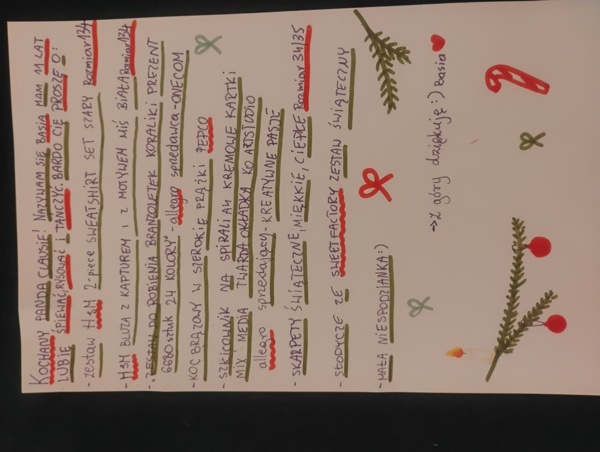 KOCHANY PANDA CLAUSIE! NAZYWAM SIĘ BASIA MAM 11 LAT
LUBIĘ ŚPIEWAĆ, RYSOWAĆ I TAŃCZYĆ. BARDO CIĘ PROSZĘ O:
- zestaw H&M 2-piece SWEATSHIRT SET SZARY Rozmiar 134
- H&M BLUZA Z KAPTUREM I Z MOTYWEM MIŚ BIAŁA Rozmiar 134
- "ZESTAW DO ROBIENIA BRANZOLETEK KORALIKI PREZENT
6680 sztuk 24 KOLORY" - allegro sprzedawca - ONECOM
- KOC BRĄZOWY W SZEROKIE PRĄŻKI PEPCO
- SZKICOWNIK NA SPIRALI A4 KREMOWE KARTKI
MIX MEDIA TWARDA OKŁADKA KO ARTSTUDIO
allegro sprzedający - KREATYWNE PASJE
- SKARPETY ŚWIĄTECZNE, MIĘKKIE, CIEPŁE Rozmiar 34/35
- SŁODYCZE ZE SWEET FACTORY ZESTAW ŚWIĄTECZNY
- MAŁA NIESPODZIANKA :)
→ Z góry dziękuję :) Basia